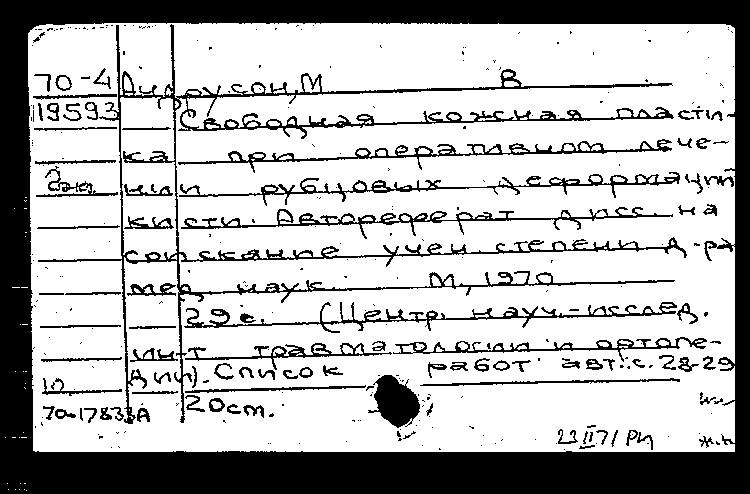 70-4 Андрусон, М В
19593 Свободная кожная пласти-
ка при оперативном лече-
нии рубцовых деформаций
кисти. Автореферат дисс. на
соискание учен. степени д-ра
мед. наук. М., 1970
29 с. (Центр. науч.-исслед.
ин-т травматологии и ортопе-
10 дии). Список работ авт.: с. 28-29
70-17833А 20 см.
23 II 71 РИ